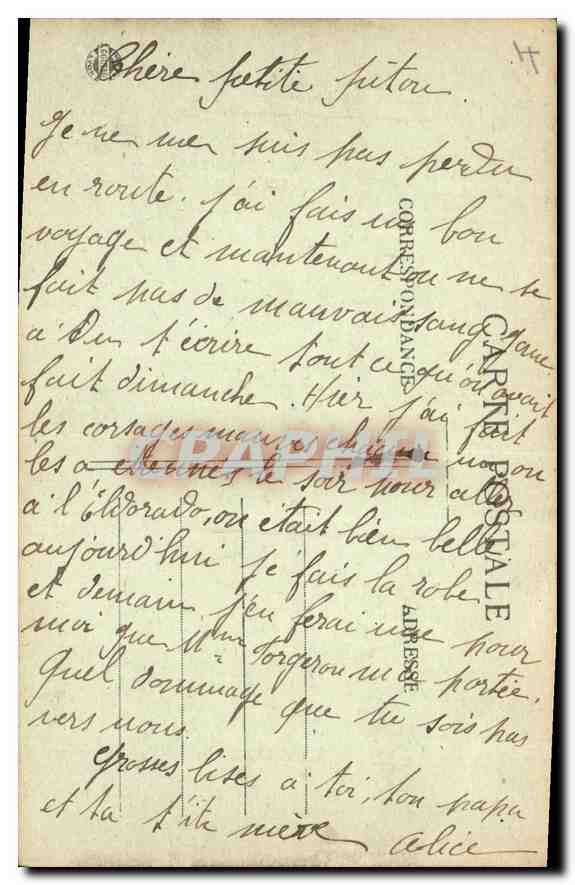 Chère petite
Je ne me suis pas perdu
en route. j'ai fais un bon
voyage et maintenant on ne se
fait pas de mauvais sang
a t'écrire tout ce qu'on avait
fait dimanche. Hier j'ai fait
les corsages mauves chacun un on
les a le soir pour aller
à l'Eldorado, on était bien belle
aujourd'hui je fais la robe
et demain j'en ferai une pour
moi que Mme m'a portée.
Quel dommage que tu sois pas
vers nous.
Grosses bises a toi, ton papa
et ta t'ite mère Alice
CARTE POSTALE
CORRESPONDANCE
ADRESSE
CPAPHIL